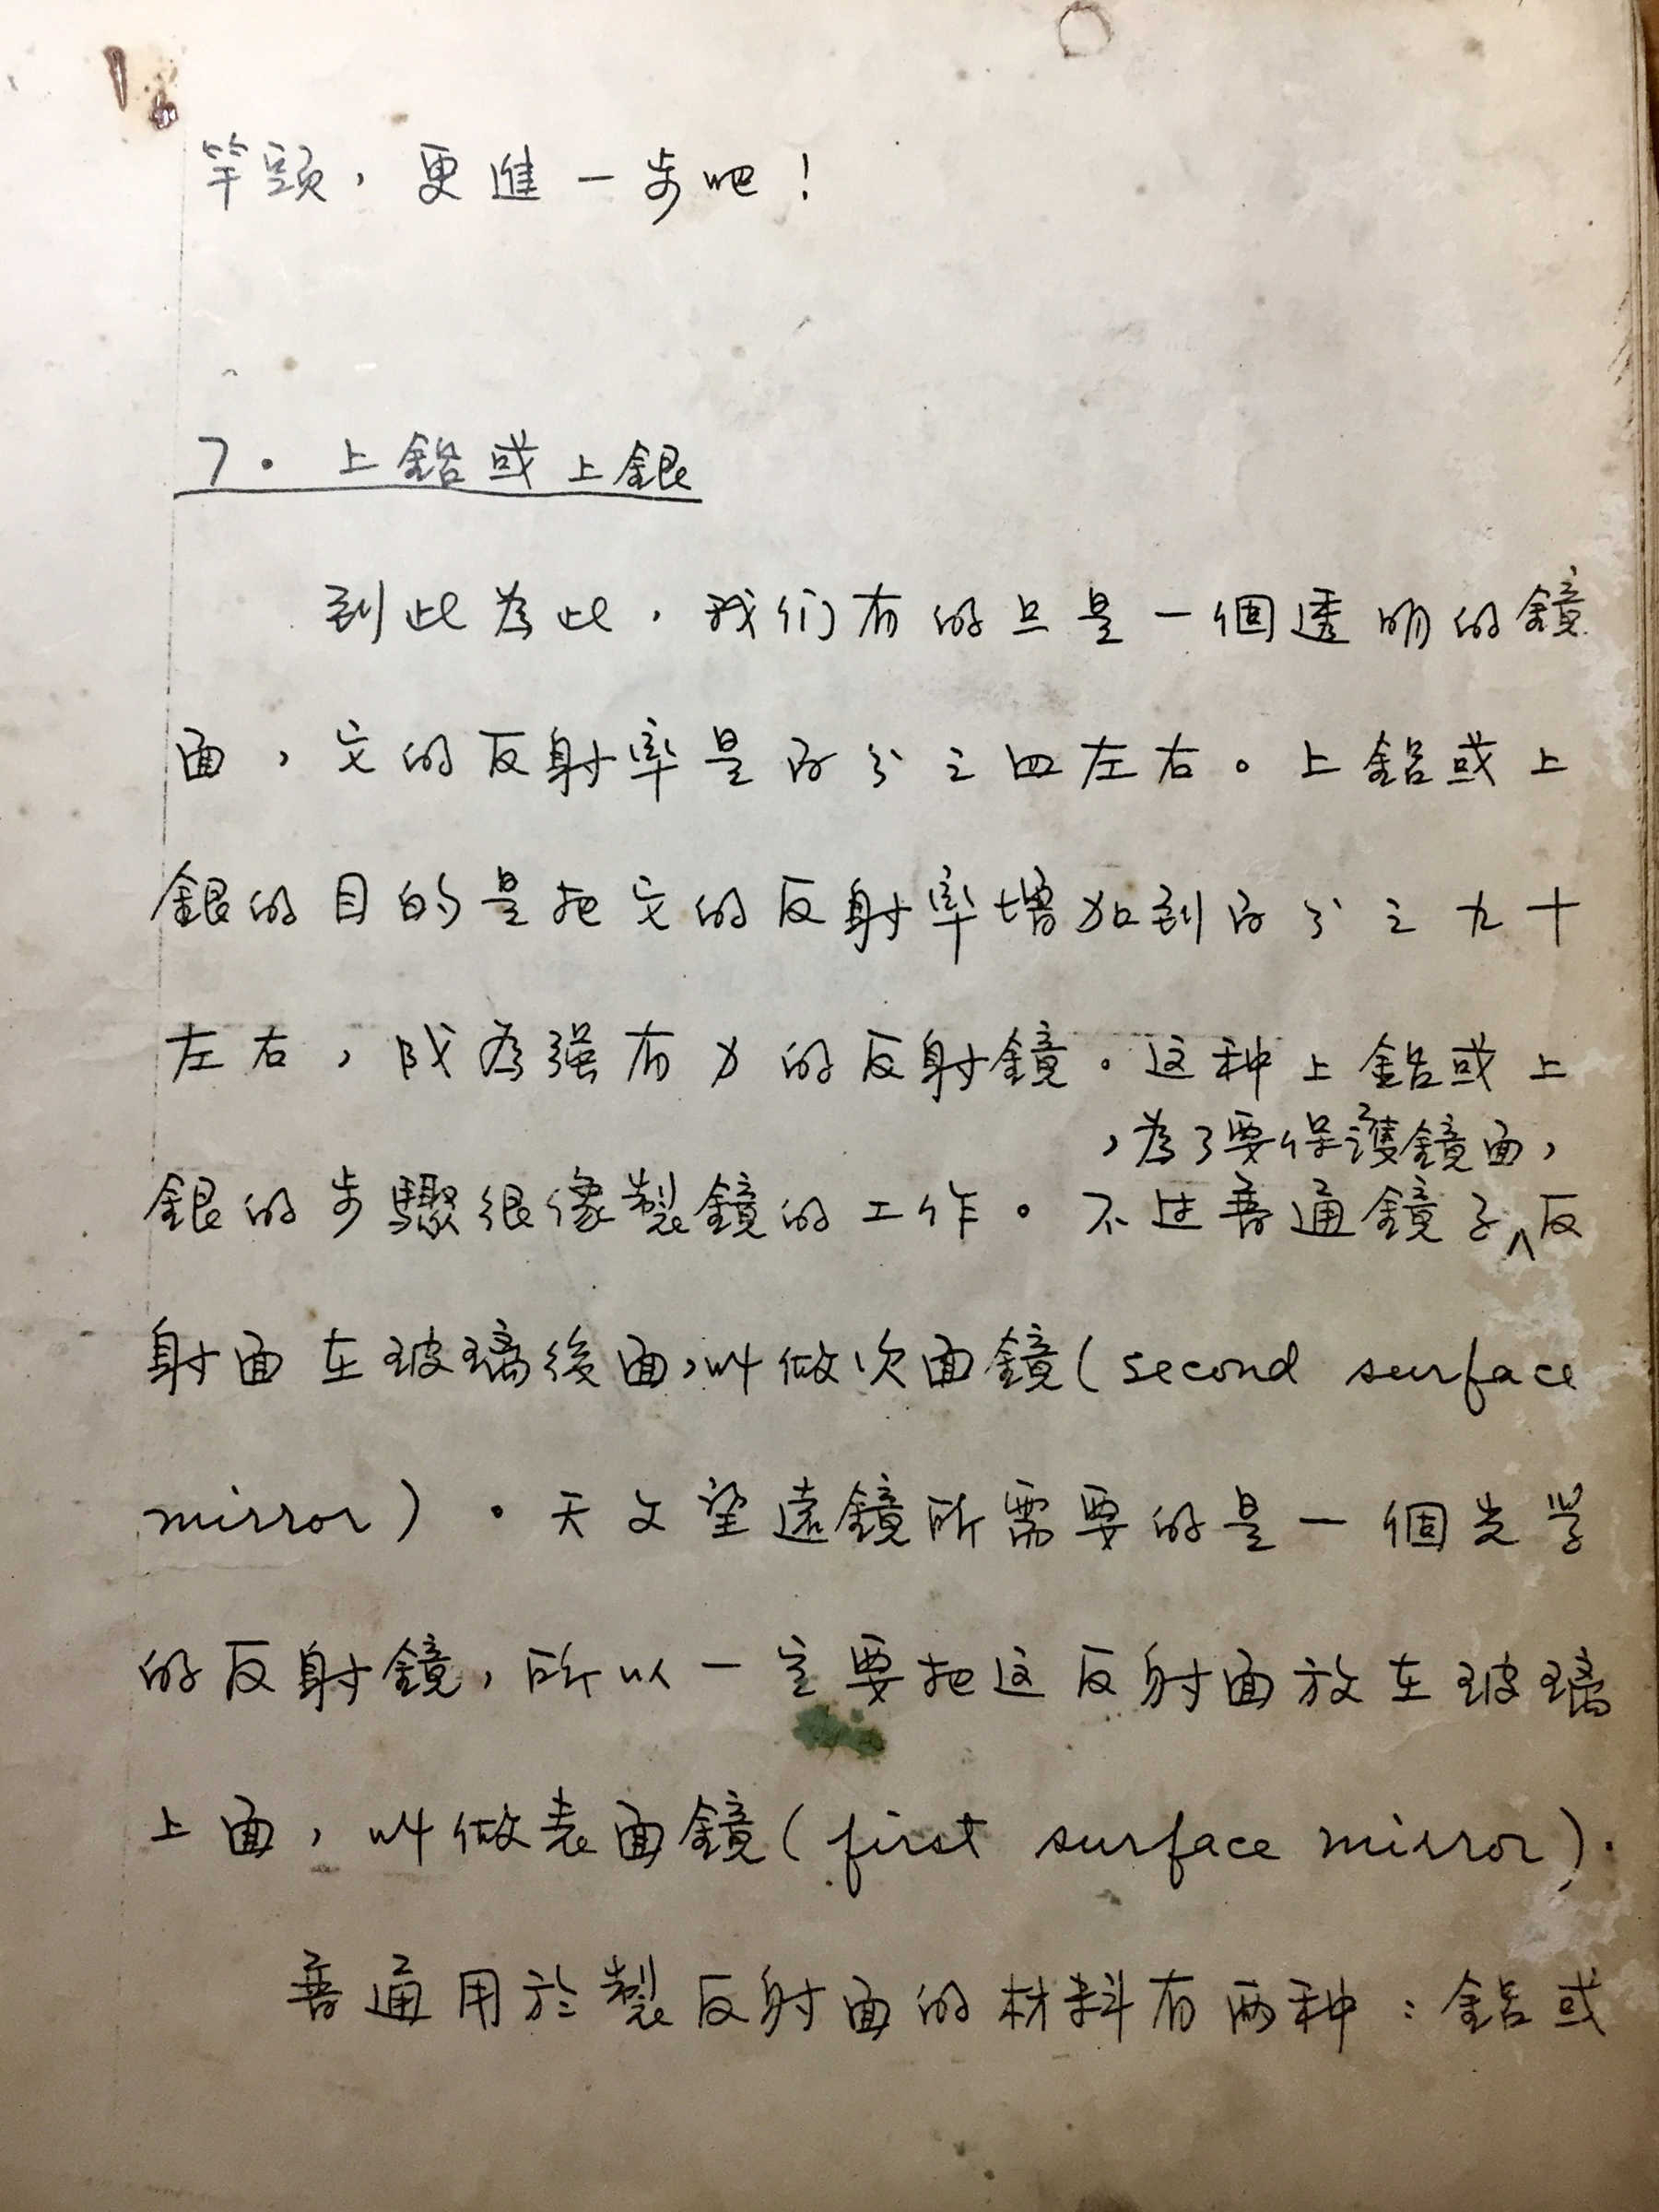 竿頭，更進一步吧！
7. 上鋁或上銀
到此為此，我们有的只是一個透明的鏡
面，它的反射率是百分之四左右。上鋁或上
銀的目的是把它的反射率增加到百分之九十
左右，成為强有力的反射鏡。这种上鋁或上
，為了要保護鏡面，
銀的步驟很像製鏡的工作。不过普通鏡子∧反
射面在玻璃後面，叫做次面鏡(second surface
mirror)。天文望遠鏡所需要的是一個光学
的反射鏡，所以一定要把这反射面放在玻璃
上面，叫做表面鏡(first surface mirror).
普通用於製反射面的材料有两种：鋁或